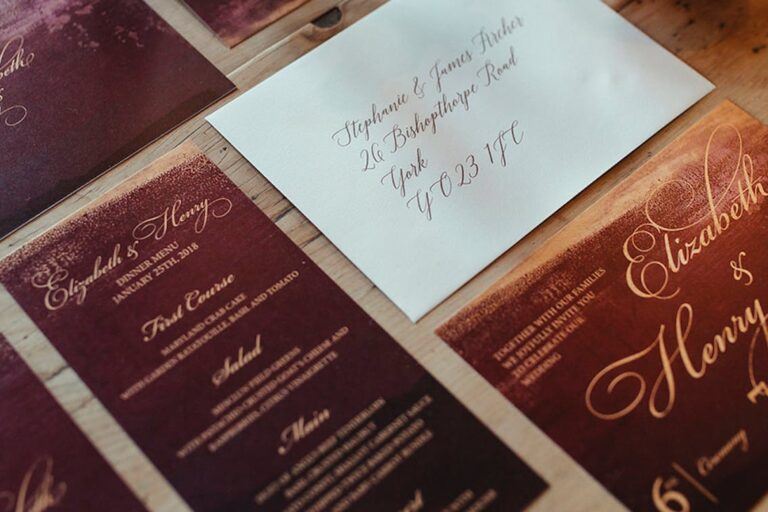 Stephanie & James Archer
26 Bishopthorpe Road
York
YO23 1FC
Elizabeth & Henry
DINNER MENU
JANUARY 25TH, 2018
First Course
MARYLAND CRAB CAKE
WITH GARDEN RATATOUILLE, BASIL AND TOMATO
Salad
MESCLUN FIELD GREENS
WITH PISTACHIO-CRUSTED GOAT'S CHEESE AND
RASPBERRIES, CITRUS VINAIGRETTE
Main
TOGETHER WITH OUR FAMILIES
WE JOYFULLY INVITE YOU
TO CELEBRATE OUR
WEDDING
Elizabeth
&
Henry
6
Ceremony